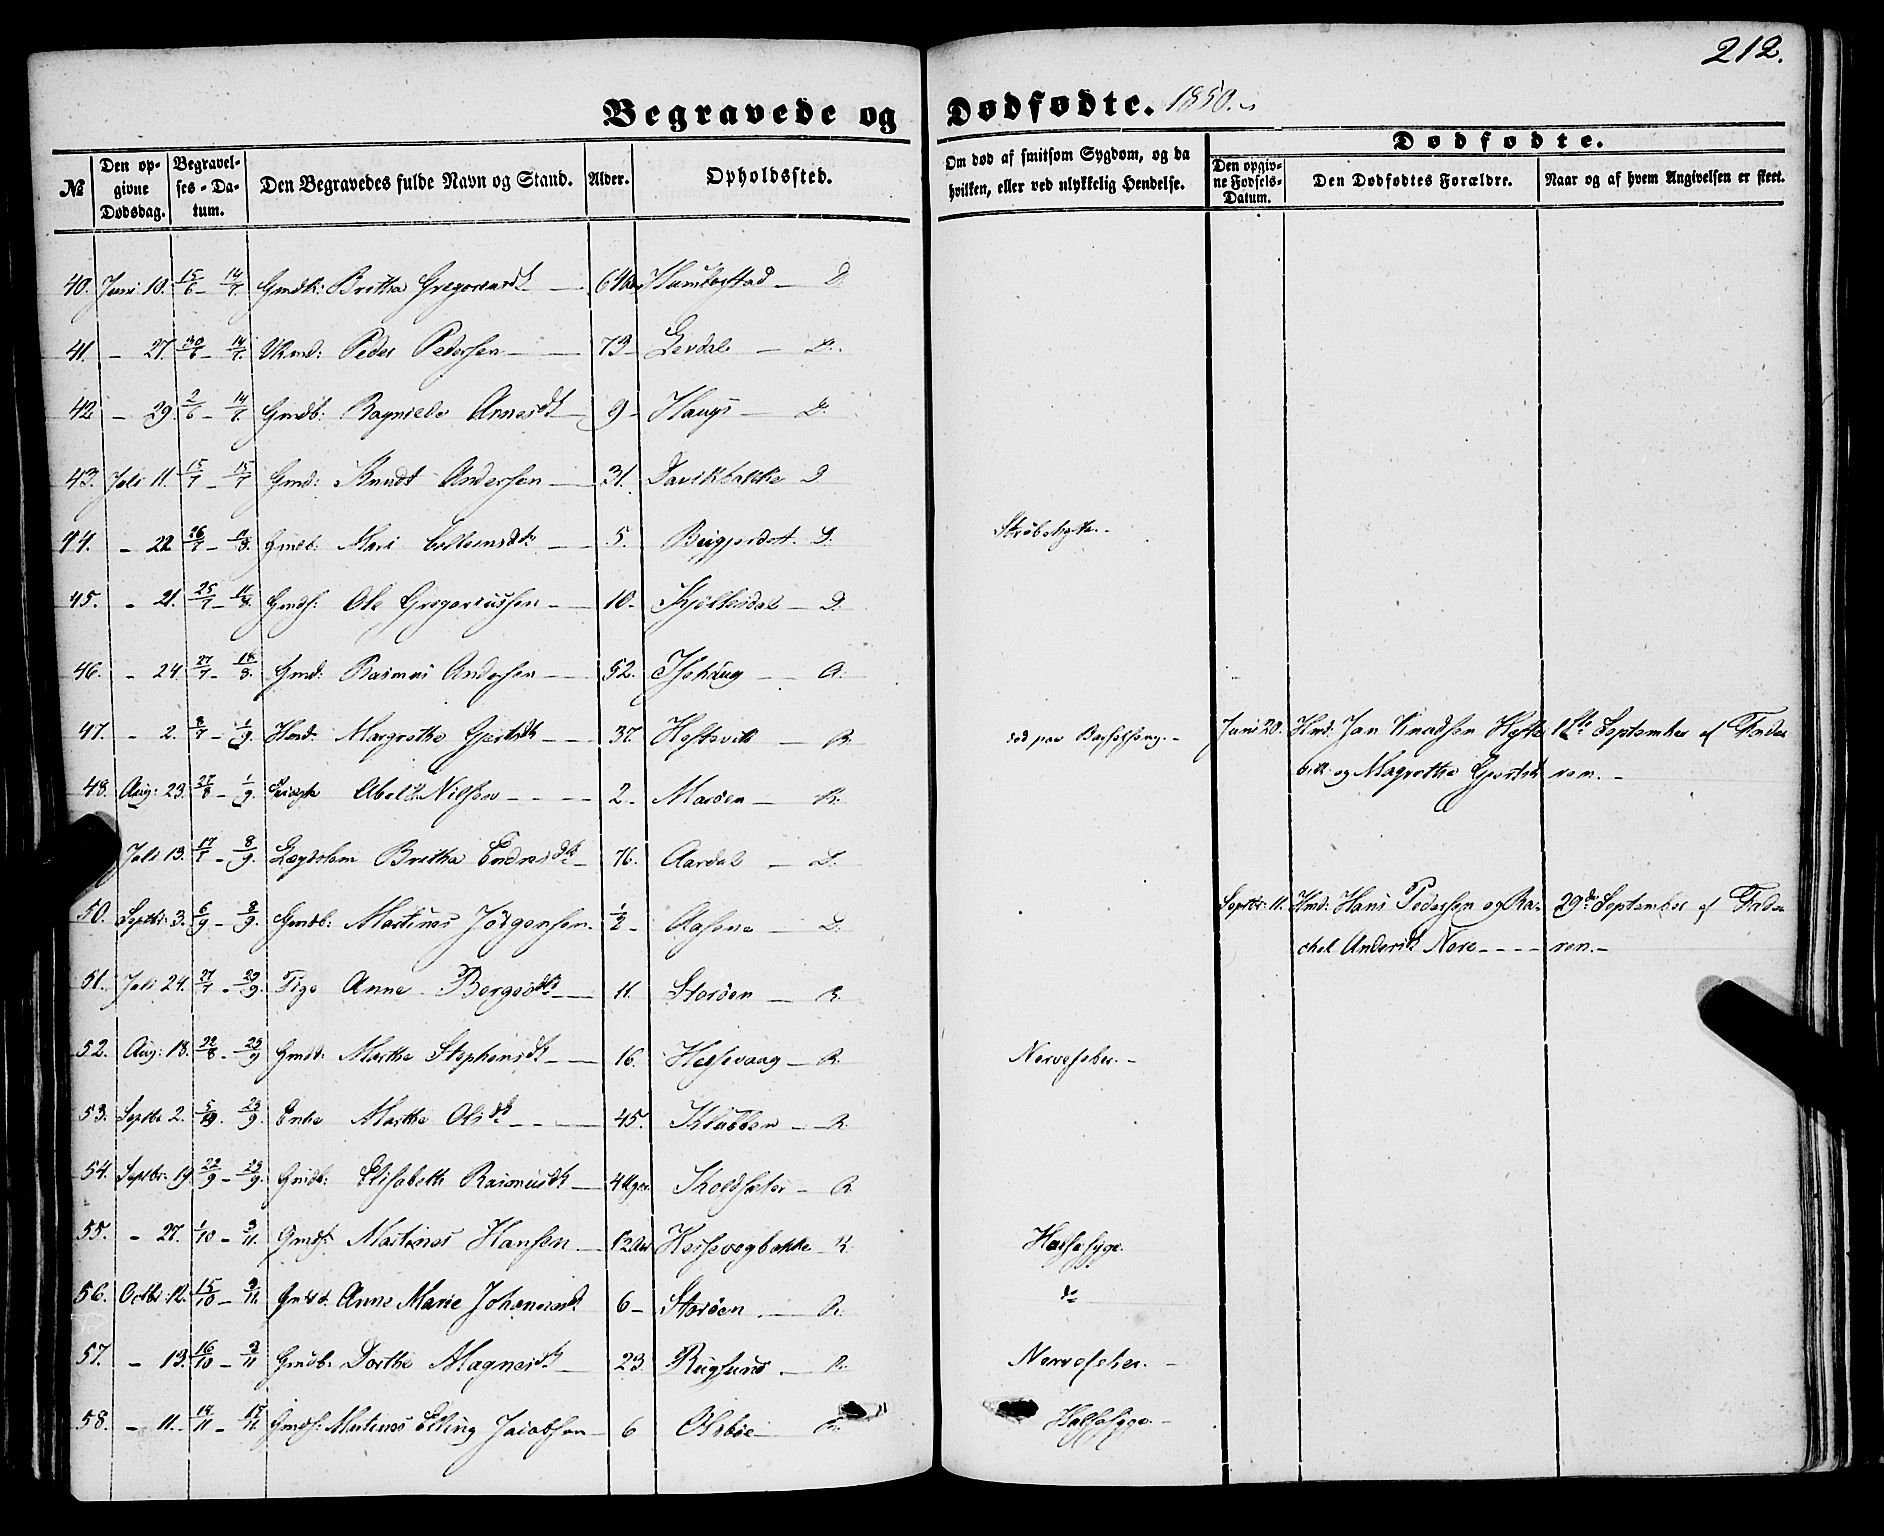 212.
Begravede og Dødfødte. 1850.
No
Den opgivne Dødsdag.
Begravelses-Datum.
Den Begravedes fulde Navn og Stand.
Alder.
Opholdssted.
Om død af smitsom Sygdom, og da hvilken, eller ved ulykkelig Hendelse.
Dødfødte.
Den opgivne Fødsels-Datum.
Den Dødfødtes Forældre.
Naar og af hvem Angivelsen er skeet.
40. Juni 10. 15/6 - 14/7 Gmdk: Britha 64 Aar Humlestad D.
41. - 27. 30/6 - 14/7. Peder Pedersen 73 - Levdal D.
42 - 29. 2/6 - 14/7. Gmdb: Ragnilde Arnesdt 9 - Haugs D.
43. Juli 11. 15/7 - 15/7 Gmd: Knudt Andersen 31. Davikbakke D
44. - 22 26/7 - 11/8. Gmdb. Mari 5. D. Strubehoste.
45. - 21. 25/7 - 11/8. Gmds. Ole Gregoriussen 10. D.
46. - 24 27/7 - 18/8. Gmd: Rasmus Andersen 52. A.
47. - 2. 8/7 - 1/9. Hmd. Margrethe Gjertsdt 37. Heftevik R. død paa Barselseng. Juni 20. Hmd: Jan Knudsen Hefte 1ste September af Fade
vik og Magrethe Gjertsdt ren.
48. Aug: 23. 27/8 - 1/9. Abel Nilsen 2. Marøen R.
Juli 13. 17/7 - 8/9. Lægdslem Britha Endresdt 76. Aardal D.
50. Septbr: 3. 6/9 - 8/9. Gmdb. Martinus Jørgensen. 1/2 - Aasene D. Septbr. 11. Hmd: Hans Pedersen og Ra 29de September af Fade
chel Andersdt Nore ren.
51. Juli 24. 27/7 - 29/9. Pige Anne 11. Storøen R.
52. Aug: 18. 22/8 - 29/9 Gmdt: Marthe Stephensdt 16. Hessevaag R. Nervefeber.
53. Septbr 2. 29/9. Enke Marthe Olsdt 45. Klubben R.
54. Septbr. 19. 22/9 - 29/9. Gmdb: Elisabeth Rasmusdt 4 Uger. Koldsæter R.
55. - 27. 1/10 - 3/11. Gmds: Martinus Hansen 12 Aar Hessevogbakke R. Halsesyge.
56. Octbr: 12. 15/10 - 3/11. Anne Marie Johannesdt 6 - Storøen R. do
57. - 13. 16/10 - 3/11 Gmdb: Dorthe Magnesdt 23. Rugsund R. Nervefeber.
58. - 11. 14/11 - 15/11. Gmds: Martinus Elling Jacobsen 6 R. Halsesyge.